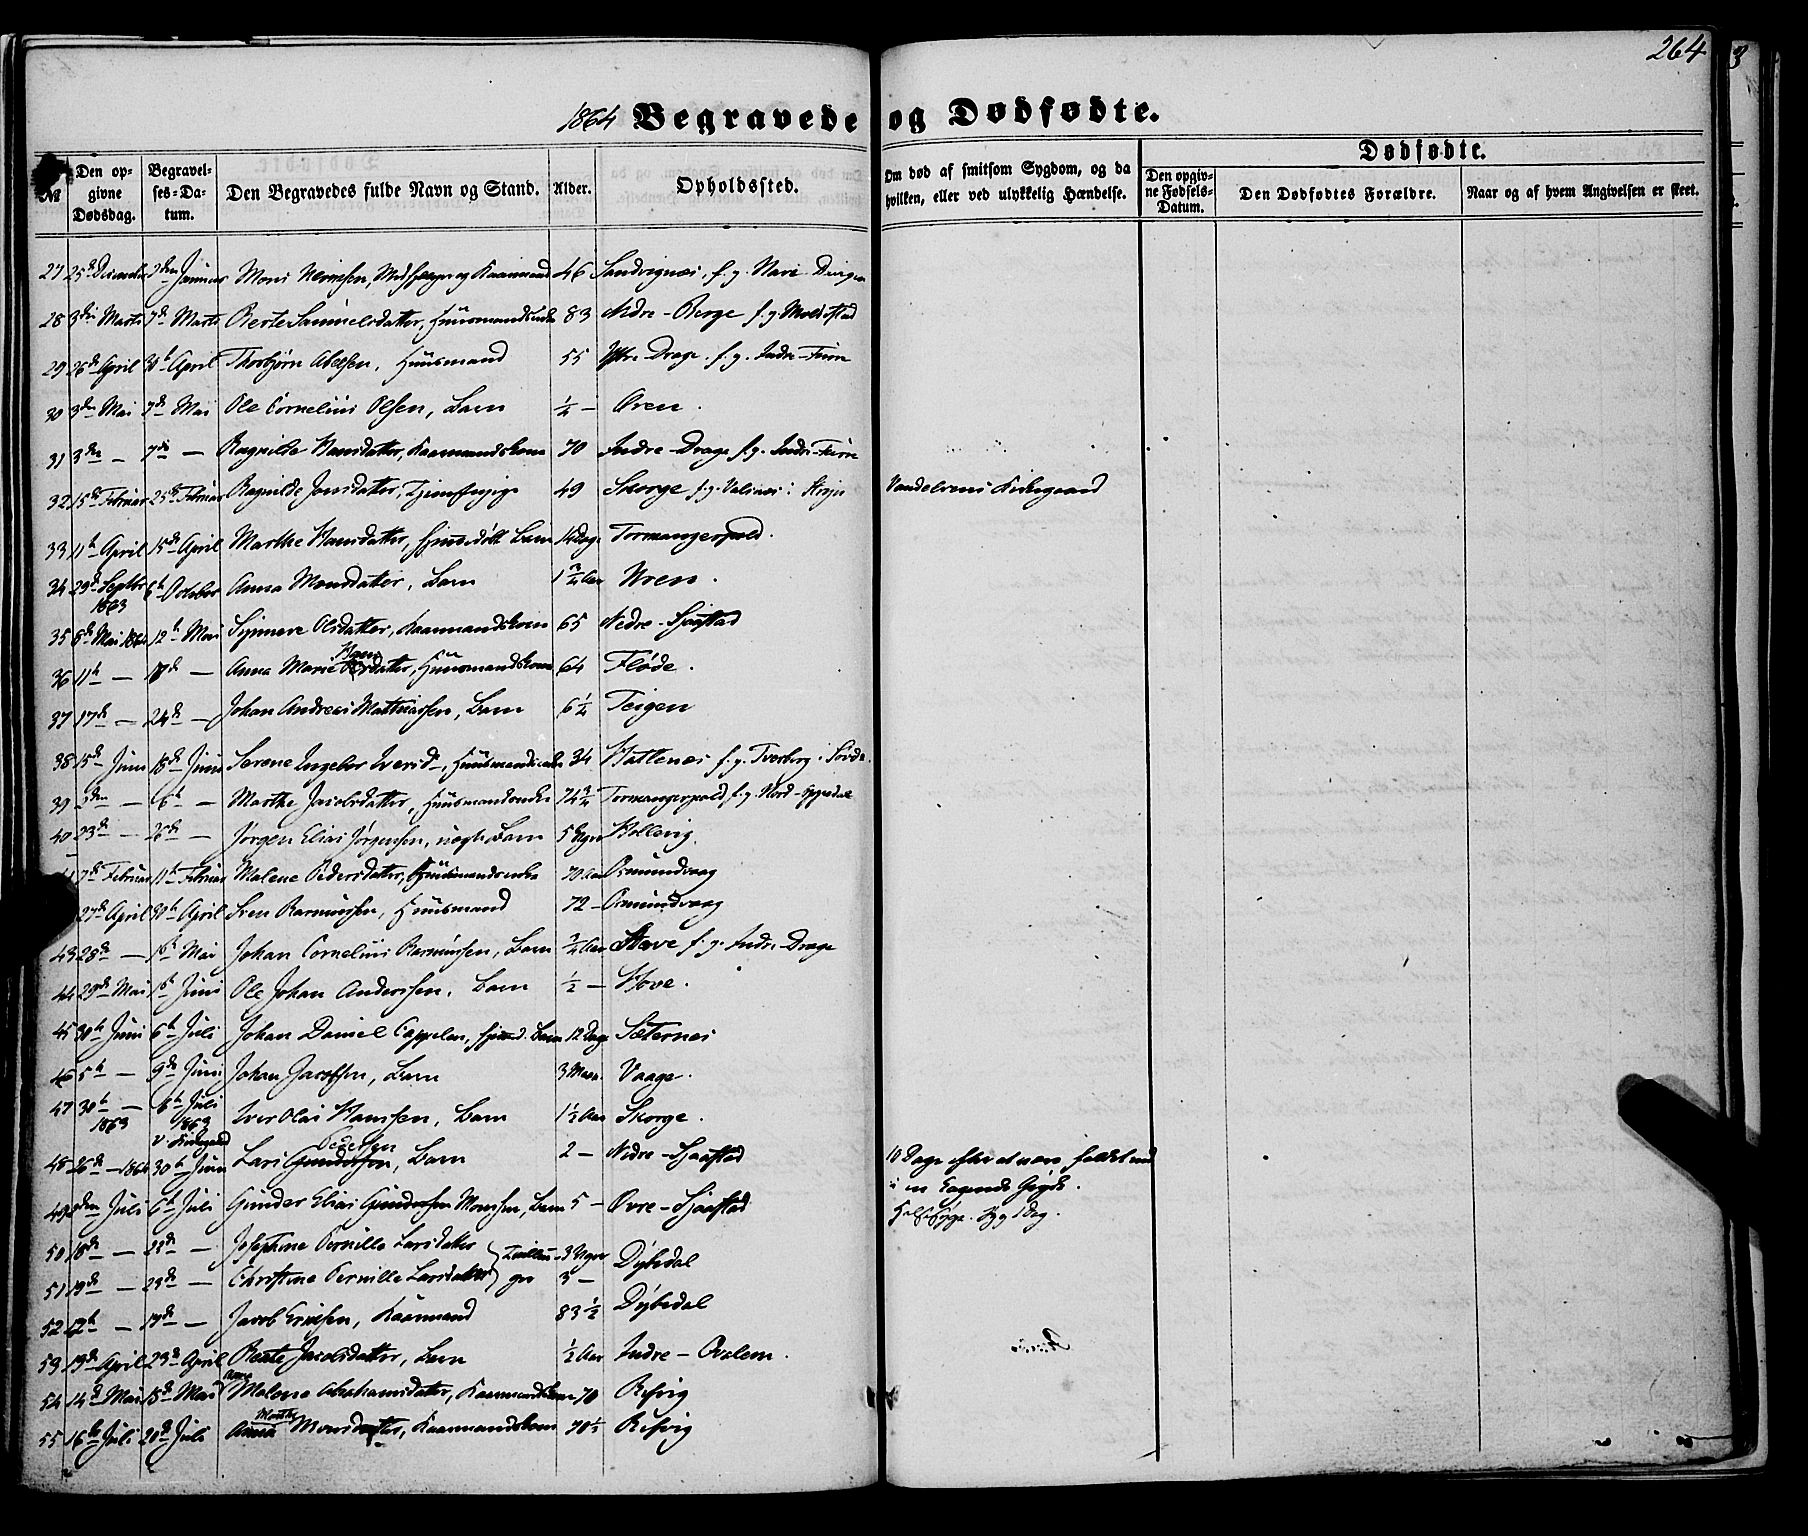 264
1864 Begravede og Dødfødte.
№ Den opgivne Dødsdag. Begravelses-Datum. Den Begravedes fulde Navn og Stand. Alder. Opholdssted. Om død af smitsom Sygdom, og da hvilken, eller ved ulykkelig Hændelse. Dødfødte. Den opgivne Fødsels-Datum. Den Dødfødtes Forældre. Naar og af hvem Angivelsen er skeet.
27 25de December Januar Mons 46 f. g.
28 3die Marts 7de Marts Berte Samuelsdatter, 83 Nedre-Berge f. g. Moldestad
29 26de April 30te April Thorbjørn Abelsen, Huusmand 55 Ytre Drage f. g. Indre-Furre
30 3die Mai 7de Mai Ole Cornelius Olsen, Barn ½ — Øren.
31 3die — 7de — Ragnilde Hansdatter, Kaarmandskone 70 Indre-Drage f. g. Indre-Furre
32 15de Februar 25de Februar Ragnilde Jonsdatter, 49 Skorge f. g. Kirkegaard
33 11te April 15de April Marthe Hansdatter, hjemmedøbt Barn 14 Dage Tormangerpold.
34 29de Septbr 1863 6te October Anna Monsdatter, Barn 1¾ Aar Uren.
35 8de Mai 1864 12te Mai Synneve Olsdatter, Kaarmandskone 65 Nedre-Sjaastad
36 11te — 18de — Anna Marie Hansdatter, Huusmandskone 64 Fløde.
37 17de — 24de — Johan Andreas Matthiassen, Barn 6½ Teigen
38 15de Juni 18de Juni Serene Ingebor Iversd., 34 Hatlenæs f. g. Tverberg i Søvde.
39 — 6te — Marthe Jacobsdatter, 74¾ Tormangerpold, f. g. Nord-Oppedal
40 23de — 26de — Jørgen Elias Jørgensen, uægte Barn 5 Uger Hollevig.
7de Februar 11te Februar Malene Pedersdatter, Huusmandsenke 70 Aar Osmundvaag
27de April 30te April Sven Rasmussen, Huusmand 72 — Osmundvaag
43 28de — 16de Mai Johan Cornelius Rasmussen, Barn ¾ Aar Stave f. g. Indre-Drage
44 29de Mai Juni Ole Johan Anderssen, Barn ½ — Hove.
45 30te Juni 6te Juli Johan Daniel Cappelen, hjemmed. Barn 12 Dage Sæternes
46 5te — 9de Juni Johan Jacobsen, Barn 3 Maan. Vaage.
47 30te — 1863 6te Juli 1863 Iver Olai Hanssen, Barn 1½ Aar Skorge.
48 26de — 1864 30te Juni Lars Pedersen, Barn 2 — Nedre-Sjaastad 10 Dage efter at være faldet ned i en kogende Gryde.
49 Juli 6te Juli Gunder Elias Monssen, Barn 5 — Øvre-Sjaastad
50 18de — 23de — Josephine Pernille Larsdatter 3 Uger Dybedal
51 19de — 23de — Christine Pernille Larsdatter 3 —
52 12te — 17de — Jacob Ericksen, Kaarmand 83½ Dybedal
53 19de April 23de April Beate Jacobsdatter, Barn ½ Aar Indre-Qvalem.
54 14de Mai 18de Mai Anne Malene Abrahamsdatter, Kaarmandskone 70 Refvig
55 16de Juli 20de Juli Marthe Monsdatter, Kaarmandskone 70½ Refvig